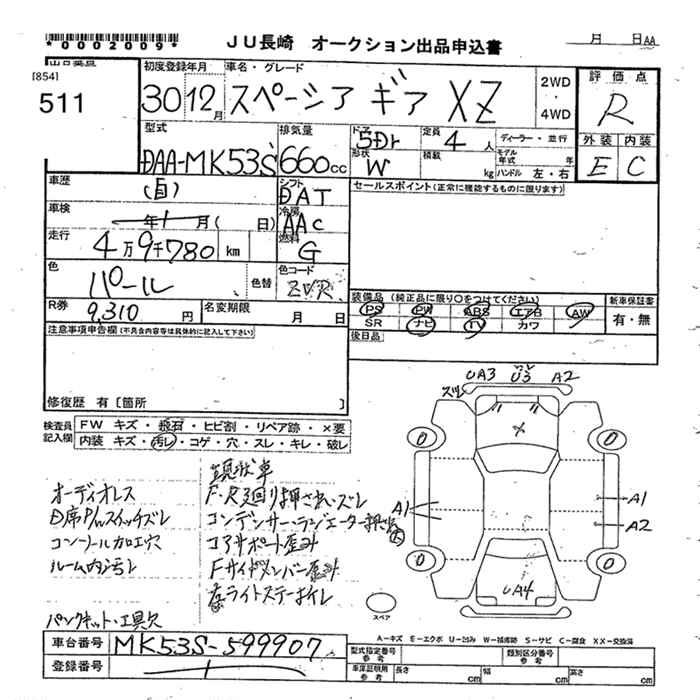 *0002009*
JU長崎 オークション出品申込書
月 日 AA
[854]
511
初度登録年月
30 12月
車名・グレード
スペーシア ギア XZ
2WD・4WD
評価点
R
型式
DAA-MK53S
排気量
660cc
ドア
5Dr
形状
W
定員
4人
積載
kg
ディーラー・並行
モデル年式 年
ハンドル 左・右
外装 内装
E C
車歴
(自)
シフト
DAT
セールスポイント(正常に機能するものに限ります)
車検
年 月( 日)
冷房
AAC
走行
4万9千780 km
燃料
G
色
パール
色替
色コード
ZVR
R券
9,310円
名変期限
月 日
装備品(純正品に限り○をつけてください)
PS PW ABS エアB AW
SR ナビ TV カワ
新車保証書
有・無
注意事項申告欄(不具合内容等は具体的に記入して下さい)
後日品
修復歴 有〔箇所 〕
検査員記入欄
FW キズ・飛石・ヒビ割・リペア跡・×要
内装 キズ・汚レ・コゲ・穴・スレ・キレ・破レ
ズレ UA3 U3 A2
オーディオレス
D席P/wスイッチズレ
コンソール加工穴
ルーム内汚レ
パンクキット・工具欠
現状車
F・R廻り押され・ズレ
コンデンサー・ラジエーター押され
コアサポート歪み
Fサイドメンバー歪み
ライトステーオレ
A1
A1
A2
UA4
スペア
A-キズ E-エクボ U-凹み W-補修跡 S-サビ C-腐食 XX-交換済
車台番号
MK53S-599907
登録番号
型式指定番号
参考
類別区分番号
参考
車庫証明用
参考
長さ
幅
高さ
cm